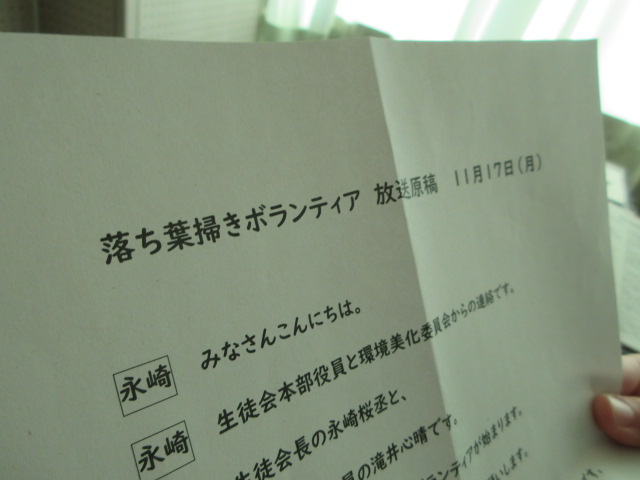 落ち葉掃きボランティア 放送原稿 11月17日(月)
みなさんこんにちは。
永崎 生徒会本部役員と環境美化委員会からの連絡です。
永崎 生徒会長の永崎桜丞と、
員の滝井心晴です。
ランティアが始まります。
いします。